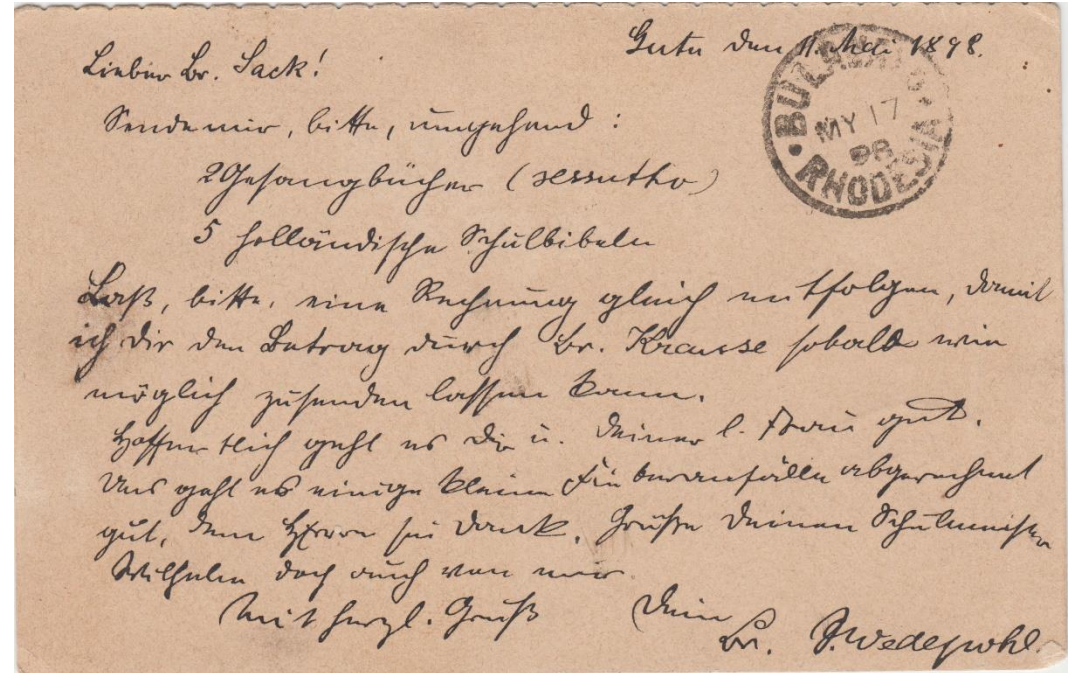 Gutu den 11. Mai 1898.
Lieber Br. Sack!
BULAWAYO
MY 17
98
RHODESIA
Sende mir, bitte, umgehend:
2 Gesangbücher (sessutho)
5 holländische Schulbibeln
Laß, bitte, eine Rechnung gleich mitfolgen, damit
ich Dir den Betrag durch Br. Krause sobald wie
möglich zusenden lassen kann.
Hoffentlich geht es Dir u. Deiner l. Frau gut.
Uns geht es einige kleine Fieberanfälle abgerechnet
gut, dem Herrn sei Dank. Grüße Deinen Schulmeister
Wilhelm doch auch von mir.
Mit herzl. Gruß Dein
Br. Wedepohl.